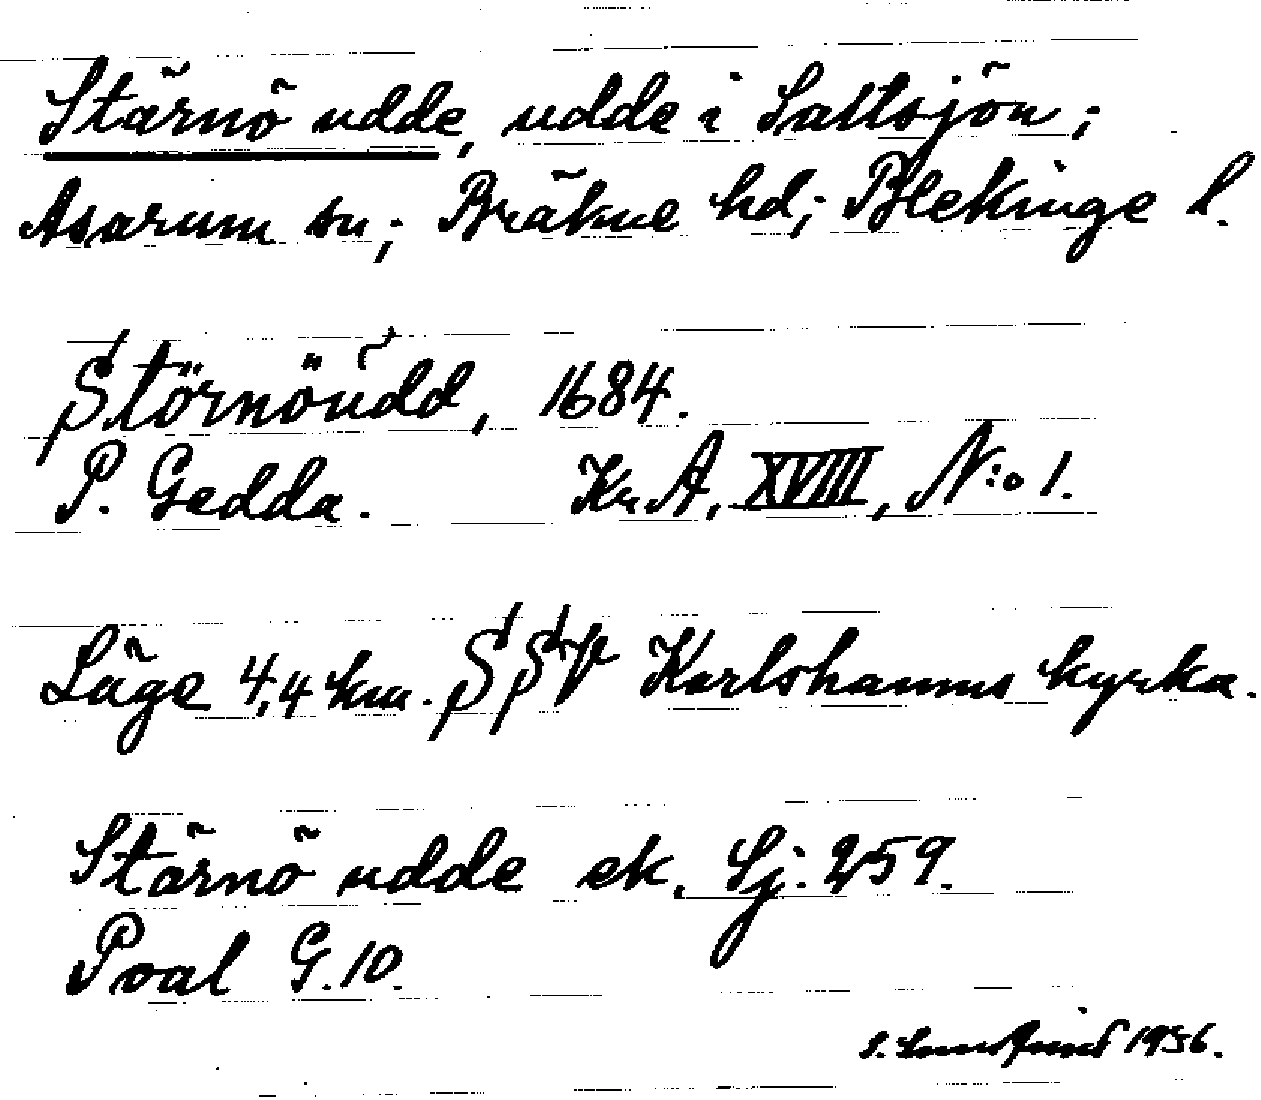 Stärnö udde, udde i Saltsjön;
Asarum sn; Bräkne hd; Blekinge l.
Störnöudd, 1684.
P. Gedda. Kr. A, XVIII, N:o 1.
Läge 4,4 km. SSV Karlshamns kyrka.
Stärnö udde ek. Sj: 259.
Pval G. 10.
S. 1956.